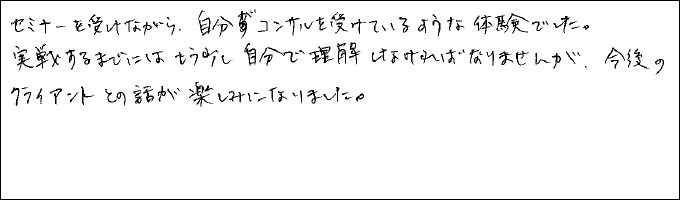 セミナーを受けながら、自分がコンサルを受けているような体験でした。
実戦するまでにはもう少し自分で理解しなければなりませんが、今後の
クライアントとの話が楽しみになりました。